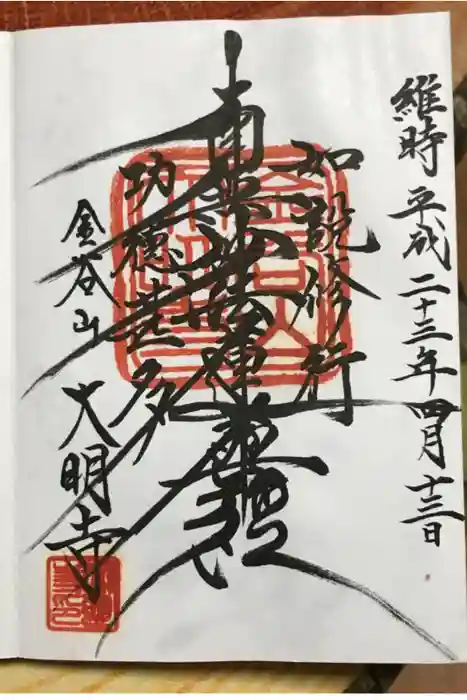 維時 平成二十三年四月十三日
如説修行
南無妙法蓮華經
功徳甚多
金谷山 大明寺